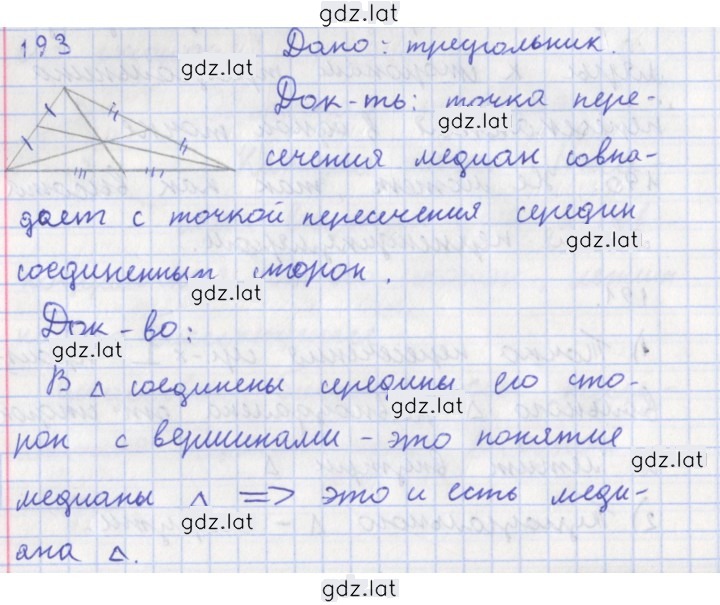 gdz.lat
193 Дано: треугольник.
gdz.lat
Док-ть: точка пере-
gdz.lat
сечения медиан совпа-
дает с точкой пересечения середин
gdz.lat
соединенным сторон.
gdz.lat
Док-во:
gdz.lat
В △ соединены середины его сто-
gdz.lat
рон с вершинами - это понятие
gdz.lat
медианы △ => это и есть меди-
gdz.lat
ана △.
gdz.lat